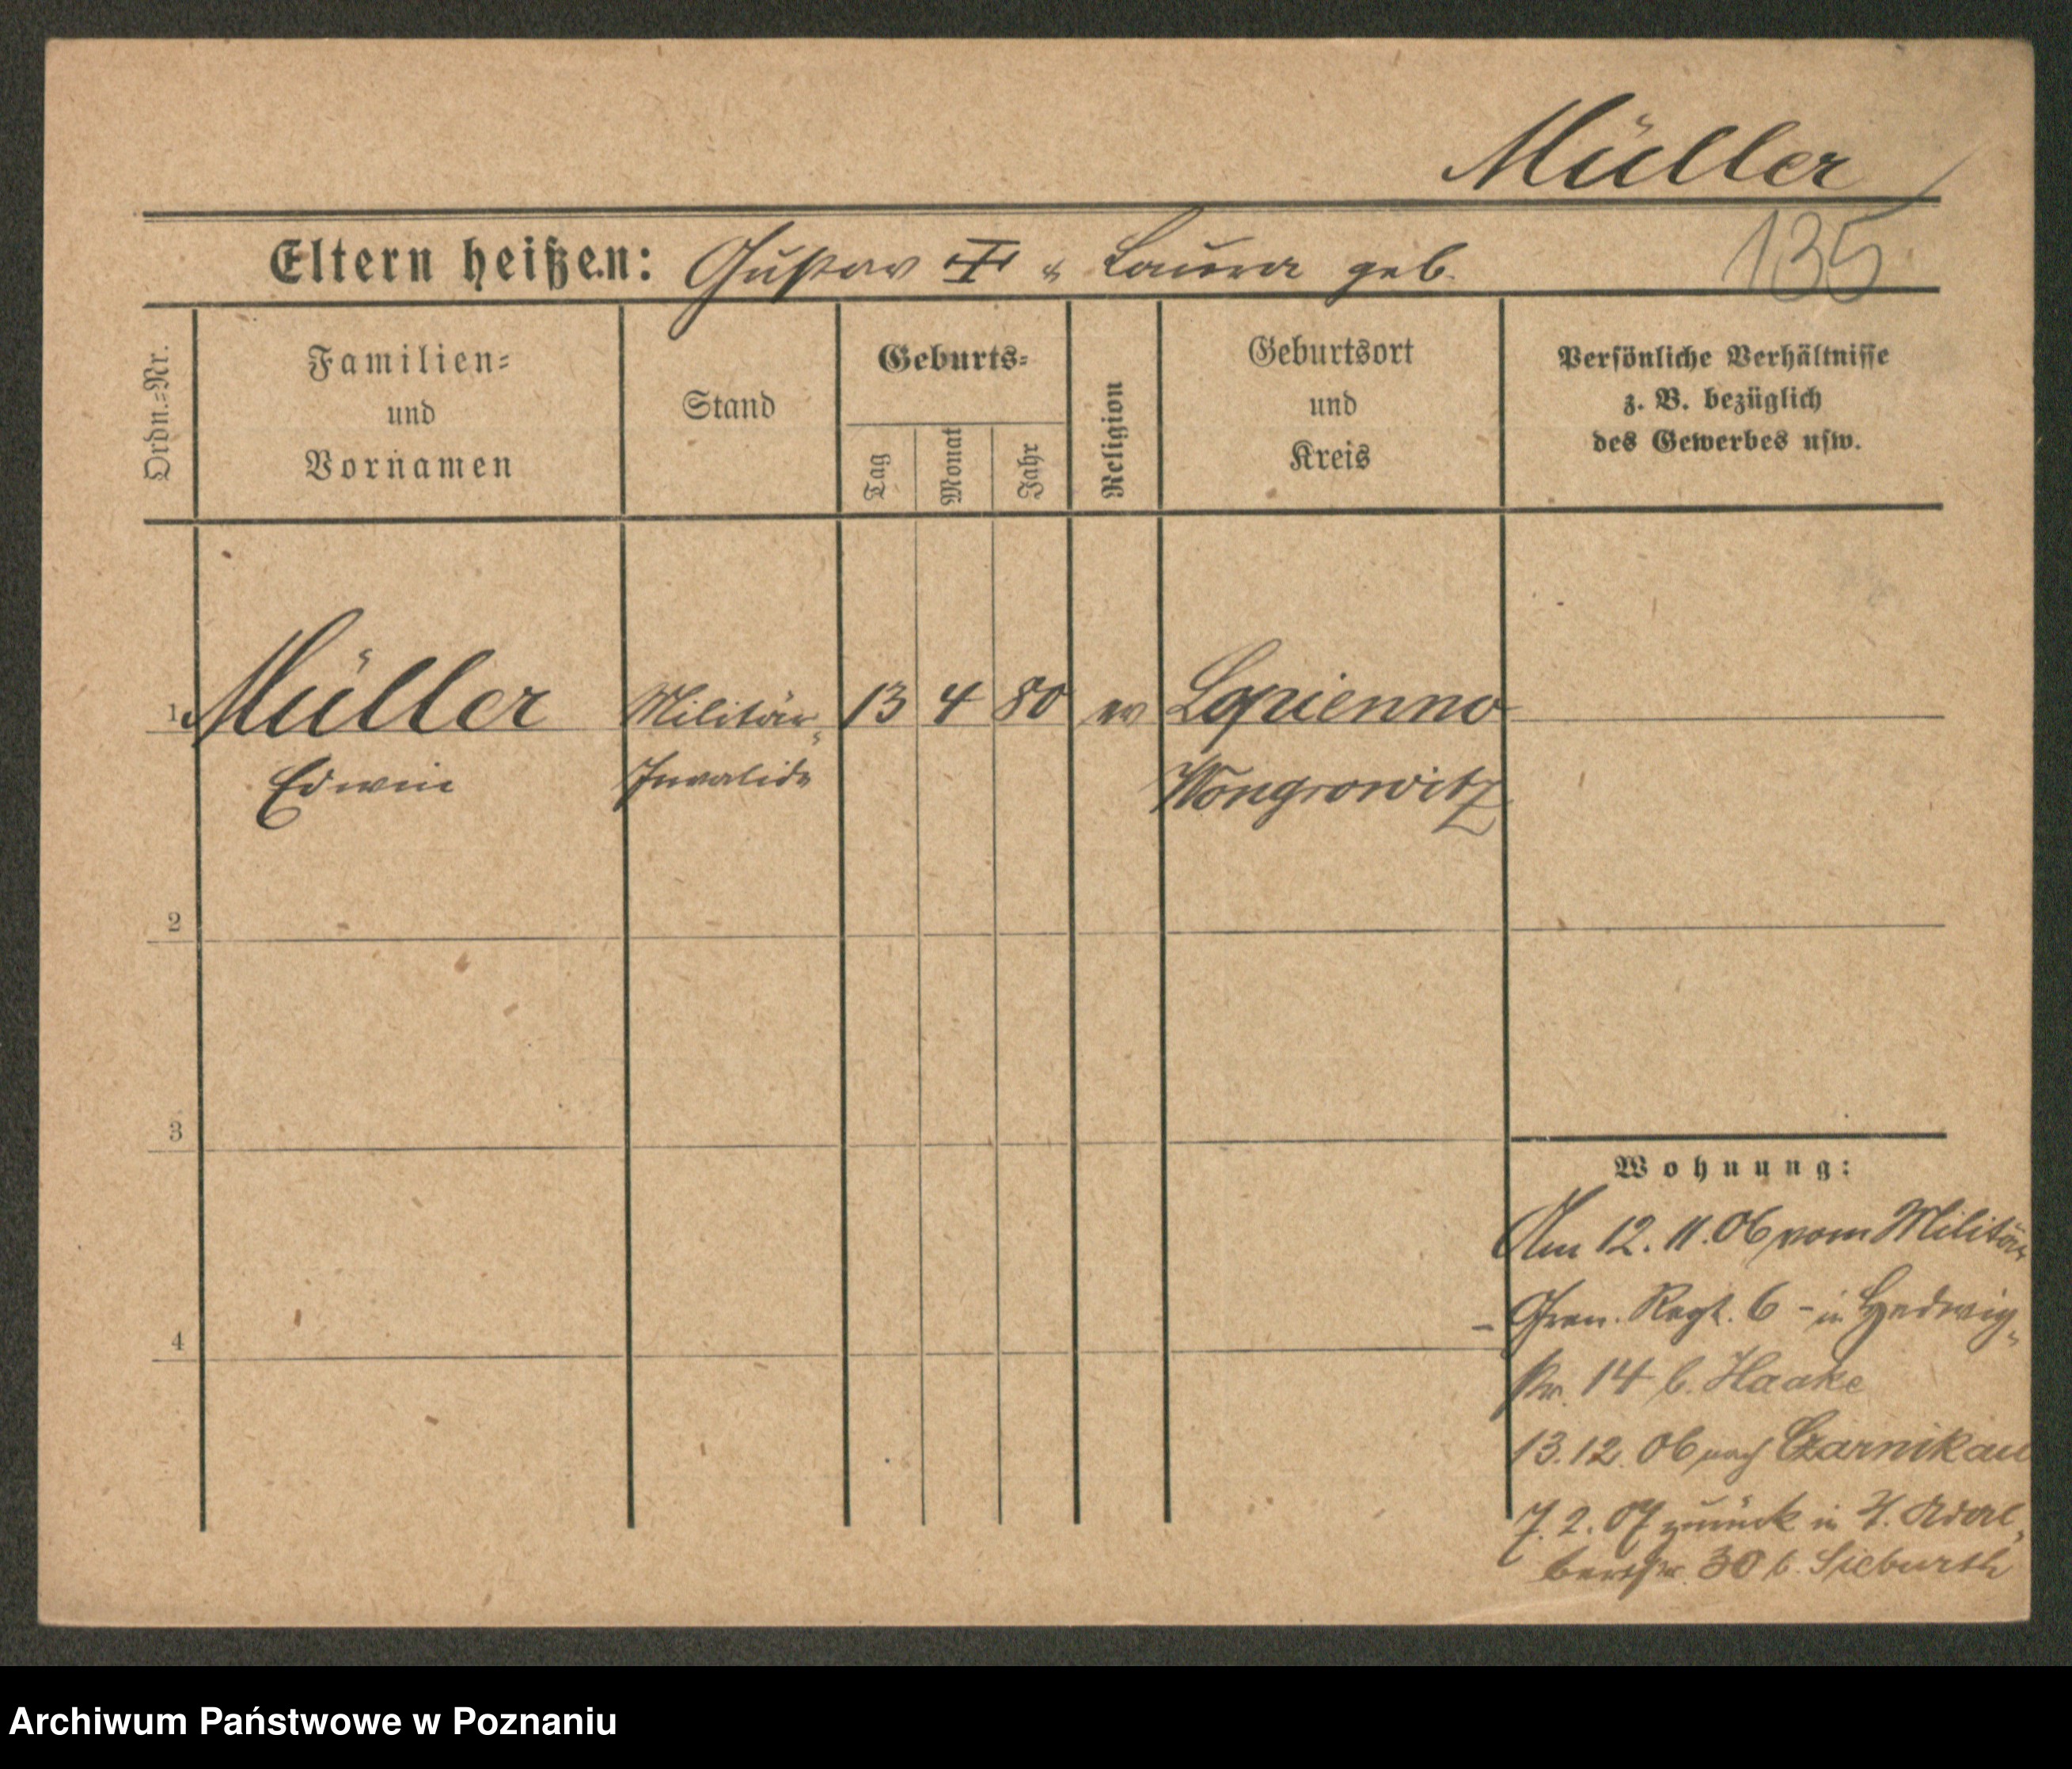 Müller
135
Eltern heißen: Gustav u Laura geb.
Ordn.-Nr.
Familien-
und
Vornamen
Stand
Geburts-
Tag
Monat
Jahr
Religion
Geburtsort
und
Kreis
Persönliche Verhältnisse
z. B. bezüglich
des Gewerbes usw.
1 Müller Militär- 13 4 80 ev Lopienno
Edwin Invalide Wongrowitz
2
3
4
Wohnung:
Am 12. 11. 06 vom Militär
- Gren. Regt. 6 - in Hedwig-
str. 14 b. Haake
13. 12. 06 nach Czarnikau
7. 2. 07 zurück in Adal-
bertstr. 30 b. Sieburth
Archiwum Państwowe w Poznaniu